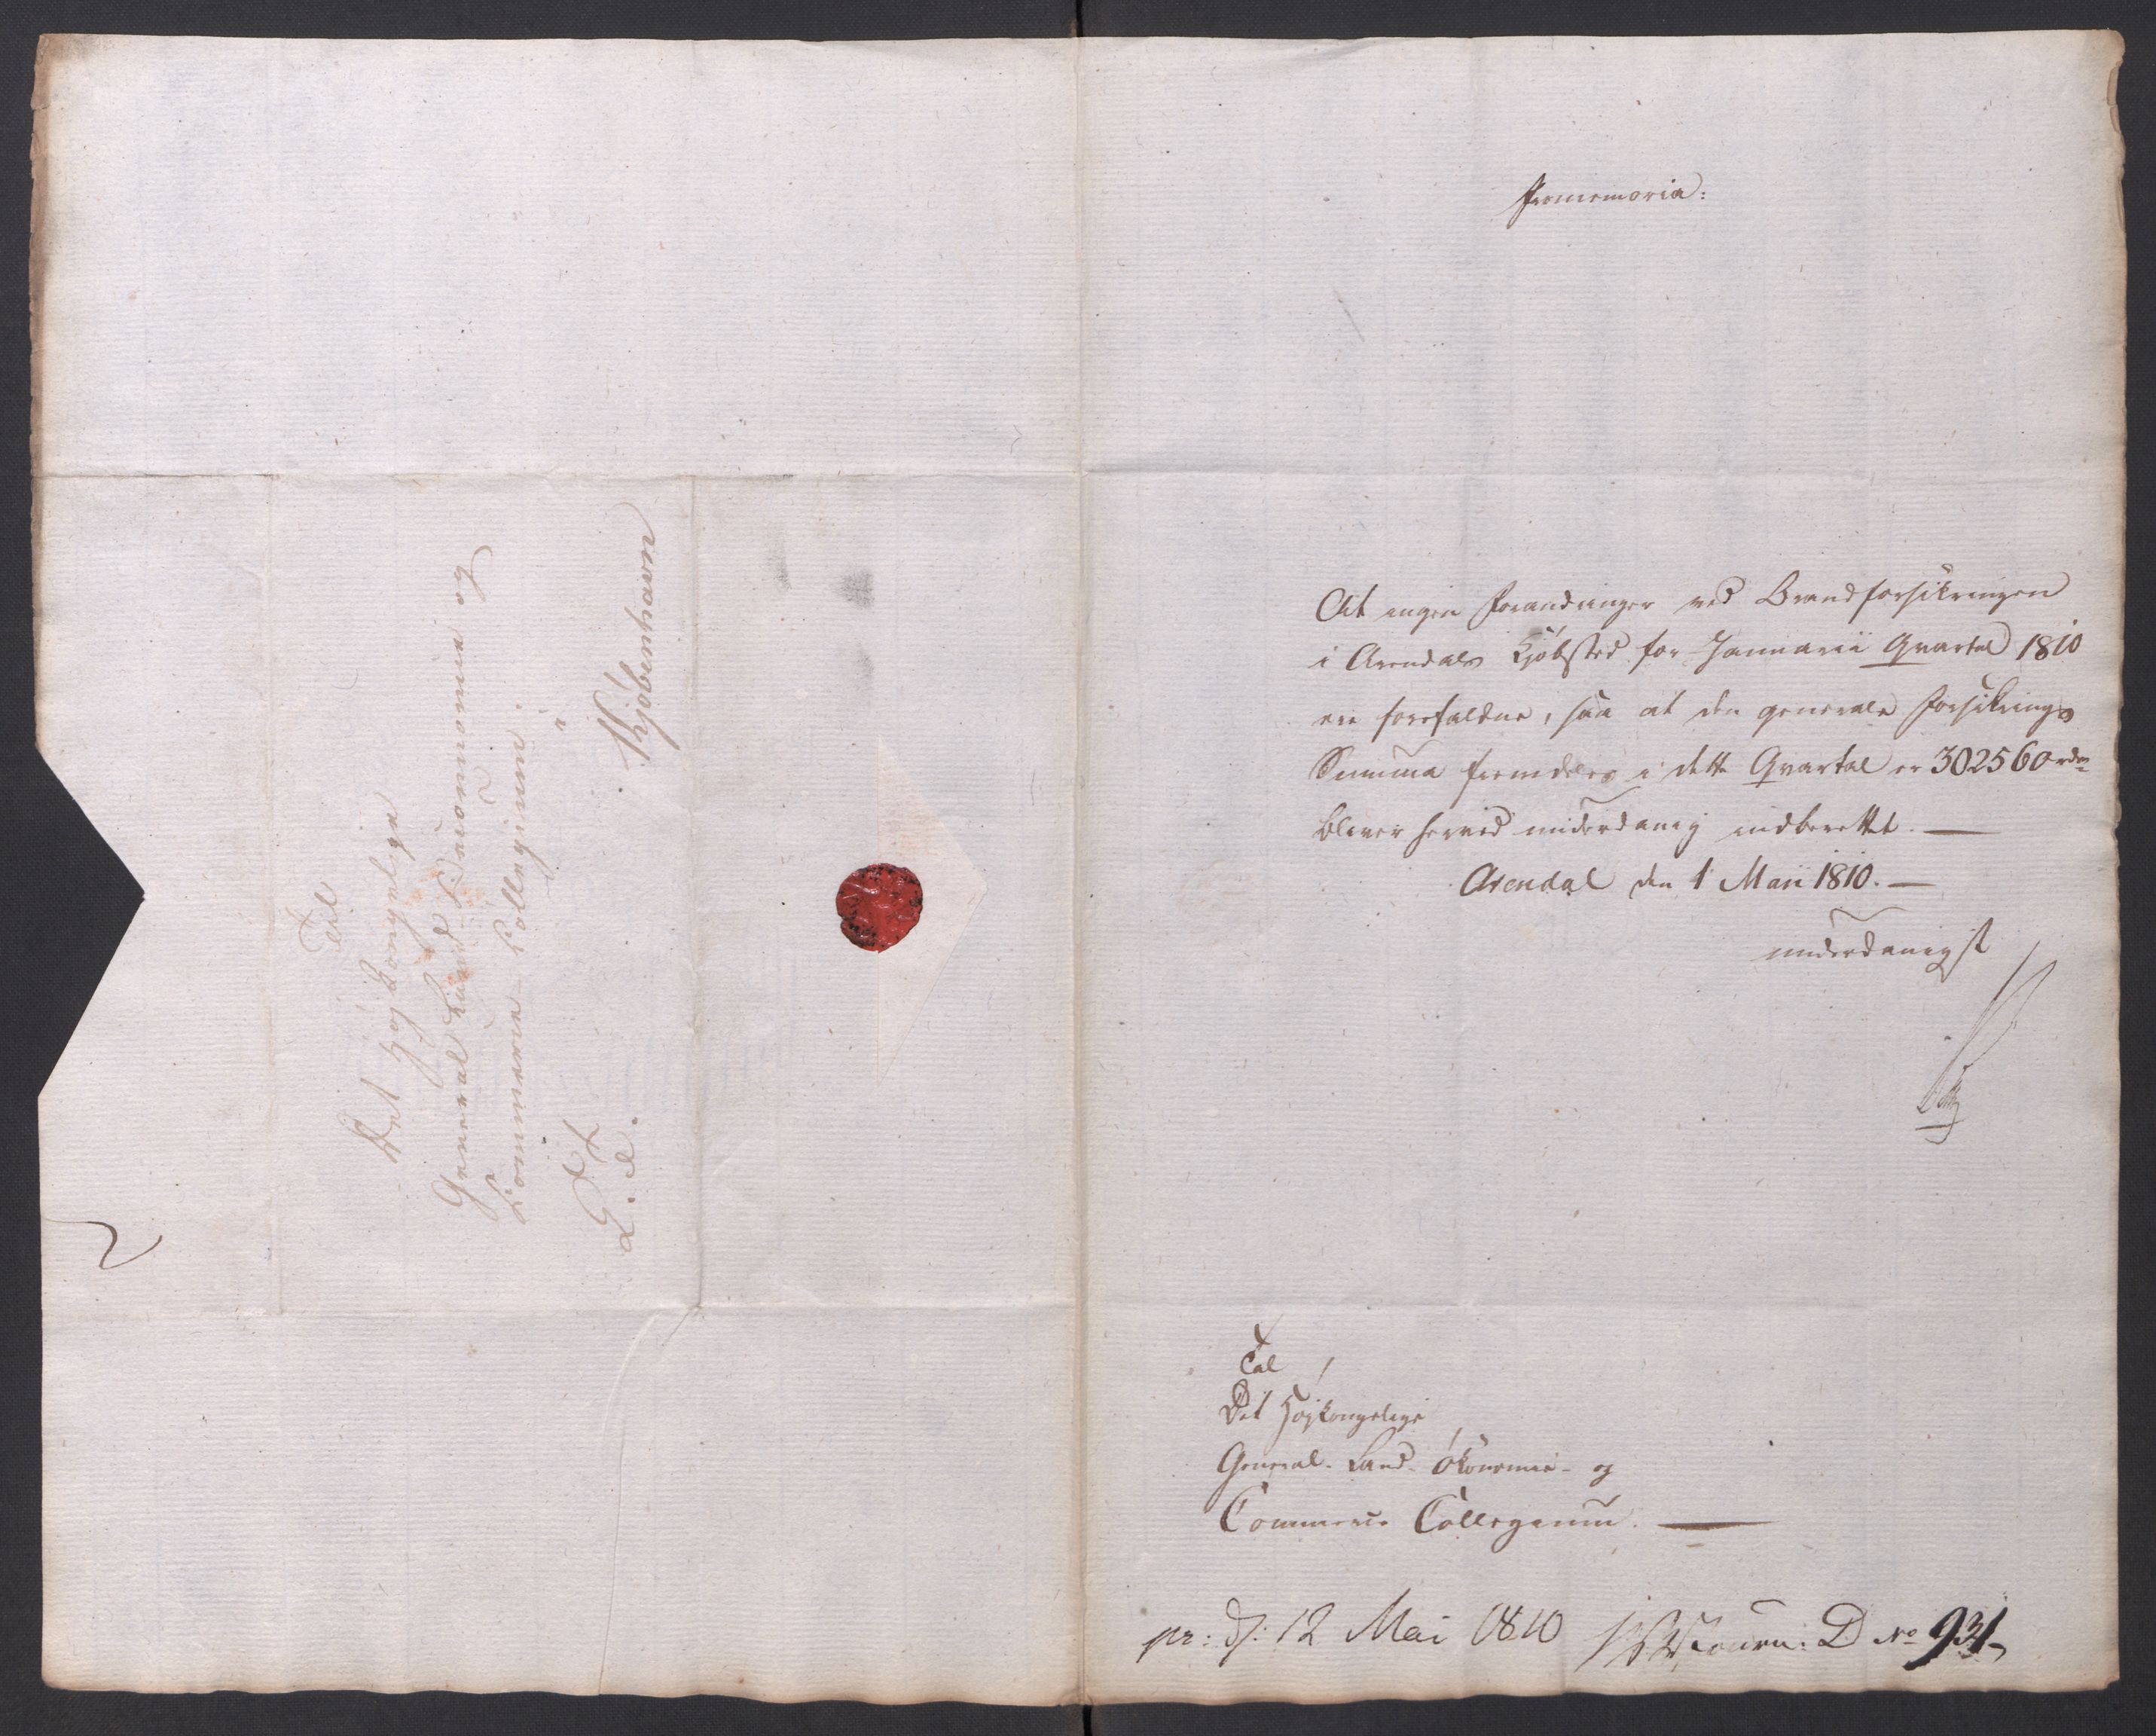 Til
Det Høj kongelige
General Land Oeconomie og
Commerce-Collegium.
i
Kjøbenhavn
K. T.
d. A.
2
Promemoria:
At ingen Forandringer ved Brandforsikringen
i Arendals Kjøbsted for Januarii Qvartal 1810
ere forefaldne, saa at den generale Forsikrings
Summa fremdeles i dette Qvartal er 302560 rdr
bliver herved underdanig indberettet. —
Arendal den 1 Maii 1810. —
underdanigst
Til
Det Højkongelige
General- Land- Økonomie- og
Commerce Collegium. —
pr: d: 12 Mai 1810
Journ: D No 931